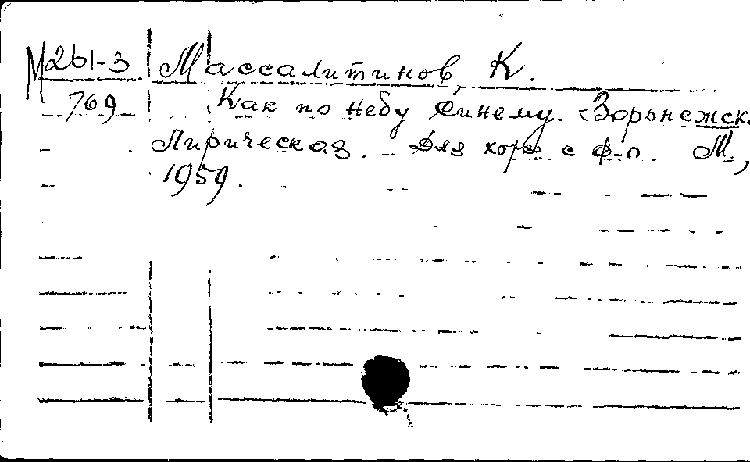 М261-3 Массалитинов, К.
769 Как по небу синему. Воронежск.
Лирическая. Для хора с ф-п. М,
1959.